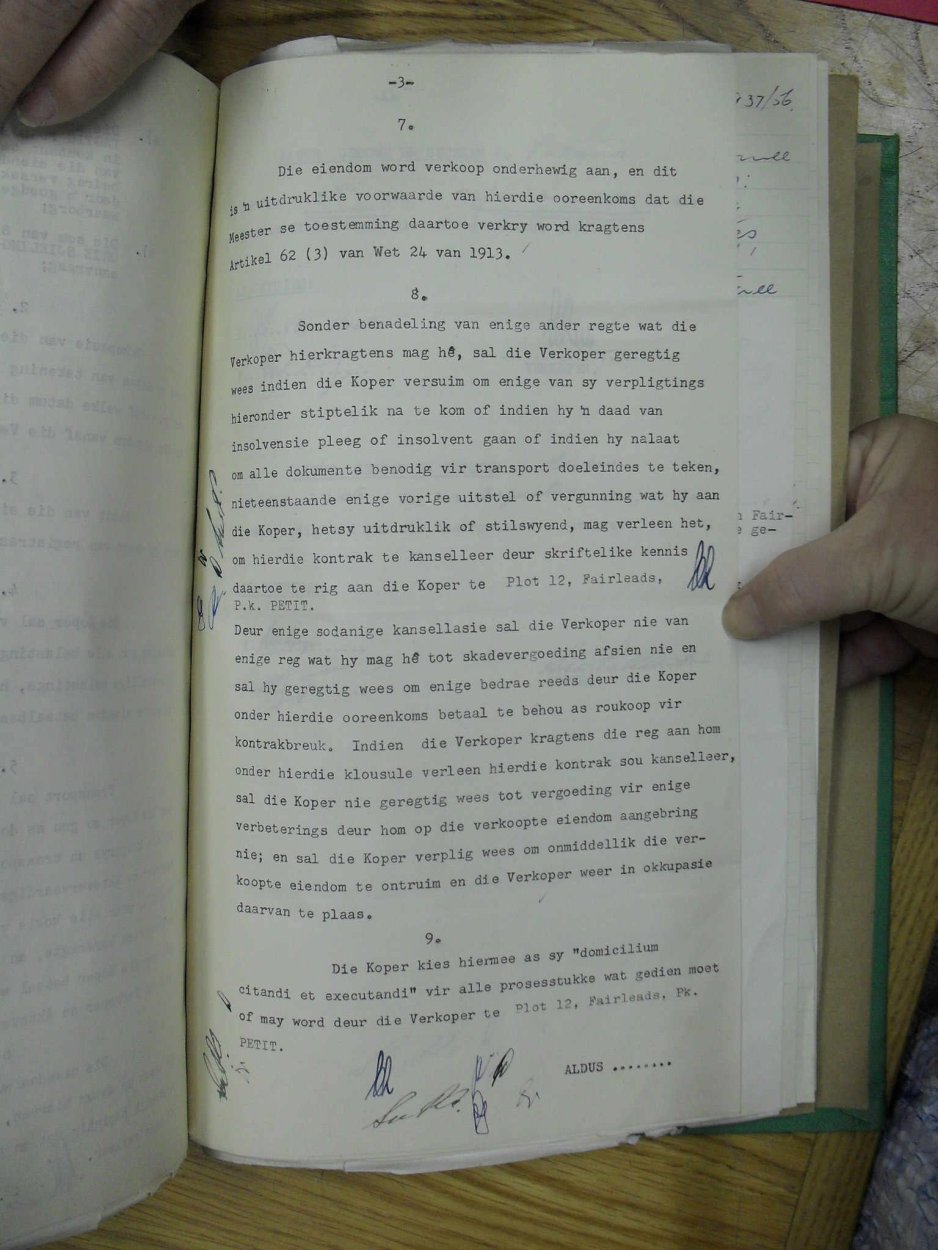 -3-
7.
Die eiendom word verkoop onderhewig aan, en dit
is 'n uitdruklike voorwaarde van hierdie ooreenkoms dat die
Meester se toestemming daartoe verkry word kragtens
Artikel 62 (3) van Wet 24 van 1913.
8.
Sonder benadeling van enige ander regte wat die
Verkoper hierkragtens mag hê, sal die Verkoper geregtig
wees indien die Koper versuim om enige van sy verpligtings
hieronder stiptelik na te kom of indien hy 'n daad van
insolvensie pleeg of insolvent gaan of indien hy nalaat
om alle dokumente benodig vir transport doeleindes te teken,
nieteenstaande enige vorige uitstel of vergunning wat hy aan
die Koper, hetsy uitdruklik of stilswyend, mag verleen het,
om hierdie kontrak te kanselleer deur skriftelike kennis
daartoe te rig aan die Koper te Plot 12, Fairleads,
P.k. PETIT.
Deur enige sodanige kansellasie sal die Verkoper nie van
enige reg wat hy mag hê tot skadevergoeding afsien nie en
sal hy geregtig wees om enige bedrae reeds deur die Koper
onder hierdie ooreenkoms betaal te behou as roukoop vir
kontrakbreuk. Indien die Verkoper kragtens die reg aan hom
onder hierdie klousule verleen hierdie kontrak sou kanselleer,
sal die Koper nie geregtig wees tot vergoeding vir enige
verbeterings deur hom op die verkoopte eiendom aangebring
nie; en sal die Koper verplig wees om onmiddellik die ver-
koopte eiendom te ontruim en die Verkoper weer in okkupasie
daarvan te plaas.
9.
Die Koper kies hiermee as sy "domicilium
citandi et executandi" vir alle prosesstukke wat gedien moet
of may word deur die Verkoper te Plot 12, Fairleads, Pk.
PETIT.
ALDUS ........
37/56
Fair-
ge-